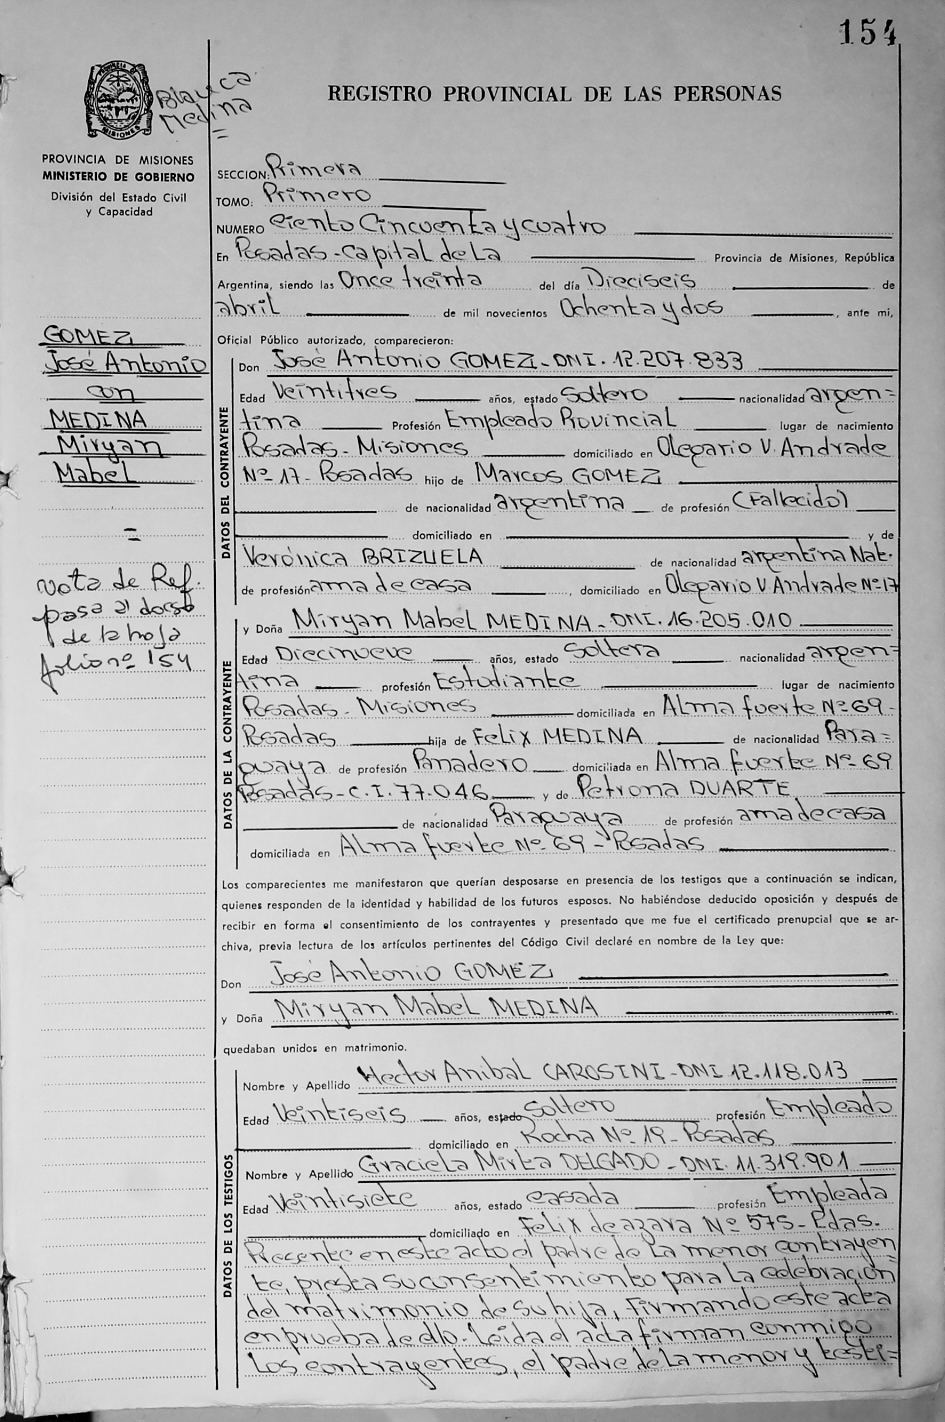 154
Blanca
Medina
=
PROVINCIA DE MISIONES
MISIONES
PROVINCIA DE MISIONES
MINISTERIO DE GOBIERNO
División del Estado Civil
y Capacidad
GOMEZ
José Antonio
con
MEDINA
Miryan
Mabel
=
nota de Ref.
pasa al dorso
de la hoja
folio nº 154
REGISTRO PROVINCIAL DE LAS PERSONAS
SECCION: Primera
TOMO: Primero
NUMERO ciento Cincuenta y cuatro
En Posadas - Capital de La Provincia de Misiones, República
Argentina, siendo las Once treinta del día Dieciseis de
abril de mil novecientos Ochenta y dos, ante mi,
Oficial Público autorizado, comparecieron:
DATOS DEL CONTRAYENTE
Don José Antonio GOMEZ - DNI. 12.207.833
Edad Veintitres años, estado Soltero nacionalidad argen=
tina Profesión Empleado Provincial lugar de nacimiento
Posadas - Misiones domiciliado en Olegario V. Andrade
Nº 17 - Posadas hijo de Marcos GOMEZ
de nacionalidad argentina de profesión (Fallecido)
domiciliado en y de
Verónica BRIZUELA de nacionalidad argentina Nat.
de profesión ama de casa, domiciliado en Olegario V Andrade Nº 17
DATOS DE LA CONTRAYENTE
y Doña Miryan Mabel MEDINA - DNI. 16.205.010
Edad Diecinueve años, estado Soltera nacionalidad argen=
tina profesión Estudiante lugar de nacimiento
Posadas - Misiones domiciliada en Alma fuerte Nº 69 -
Posadas hija de Felix MEDINA de nacionalidad Para=
guaya de profesión Panadero domiciliado en Alma fuerte Nº 69
Posadas - C.I. 77.046 y de Petrona DUARTE
de nacionalidad Paraguaya de profesión ama de casa
domiciliada en Alma fuerte Nº 69 - Posadas
Los comparecientes me manifestaron que querían desposarse en presencia de los testigos que a continuación se indican,
quienes responden de la identidad y habilidad de los futuros esposos. No habiéndose deducido oposición y después de
recibir en forma el consentimiento de los contrayentes y presentado que me fue el certificado prenupcial que se ar-
chiva, previa lectura de los artículos pertinentes del Código Civil declaré en nombre de la Ley que:
Don José Antonio GOMEZ
y Doña Miryan Mabel MEDINA
quedaban unidos en matrimonio.
DATOS DE LOS TESTIGOS
Nombre y Apellido Hector Anibal CAROSINI - DNI 12.118.013
Edad Veintiseis años, estado Soltero profesión Empleado
domiciliado en Rocha Nº 19 - Posadas
Nombre y Apellido Graciela Mirta DELGADO - DNI. 11.319.901
Edad Veintisiete años, estado casada profesión Empleada
domiciliado en Felix de azara Nº 575 - Pdas.
Presente en este acto el padre de La menor contrayen
te, presta su consentimiento para La celebración
del matrimonio de su hija, firmando este acta
en prueba de ello. Leida el acta firman conmigo
Los contrayentes, el padre de La menor y testi=